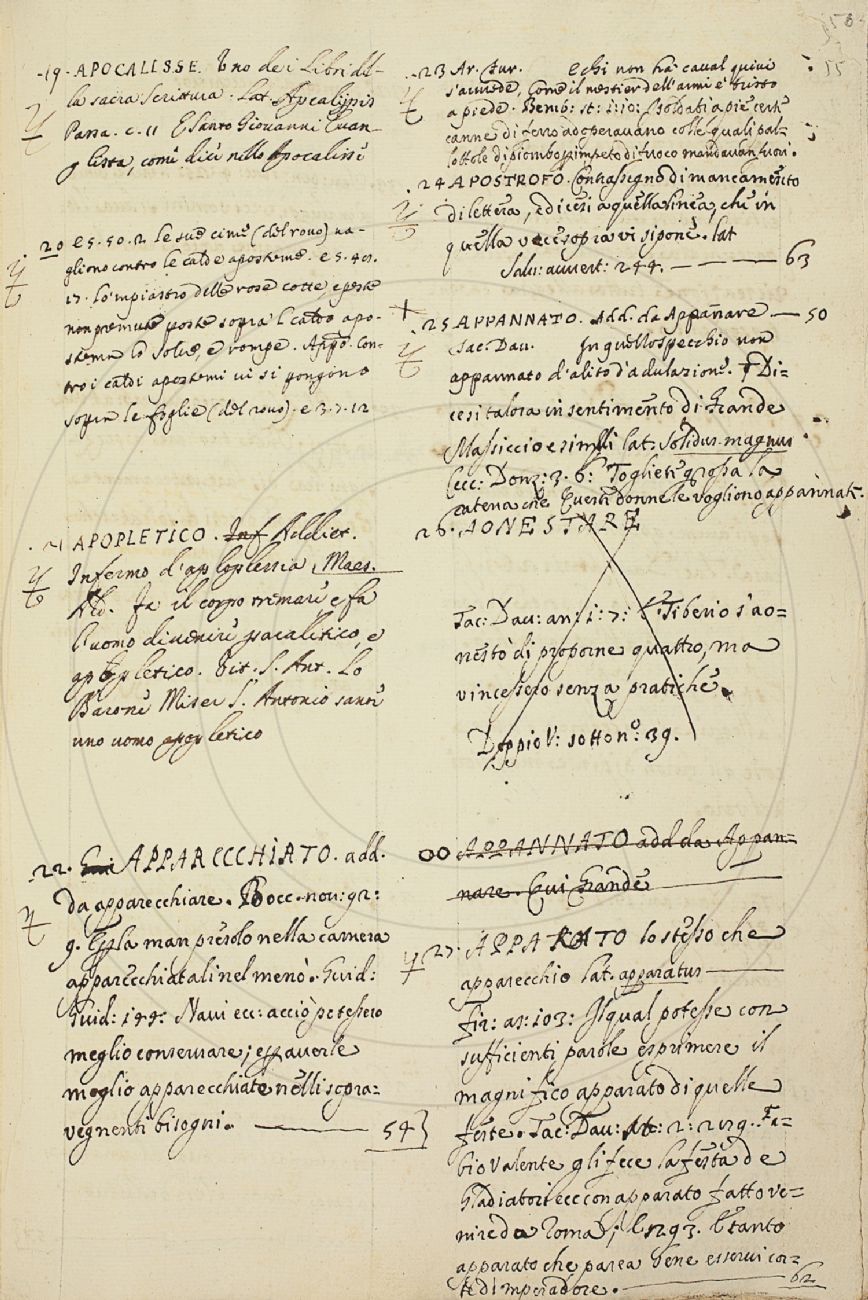 58
55
19. APOCALISSE. Uno dei Libri del-
la sacra Scrittura. Lat. Apocalipsis
Passa. c. 11 E Santo Giovanni Evan-
glista, come dice nello Apocalissi
20 e 5. 50. 2. Le sue cime (del rovo) va-
gliono contro le calde aposteme. e 5. 401.
17. Lo'mpiastro delle rose cotte, e peste
non premute poste sopra 'l caldo apo-
stema lo solve, e rompe. App.º Con-
tro i caldi apostemi vi si pongono
sopra le foglie (del rovo). e 3. 7. 12
21 APOPLETICO. Inf Addiet.
Infermo d'apoplessia, Maes.
Ald. Fa il corpo tremare e fa
l'uomo divenire paraletico, e
apopletico. Vit. S. Ant. Lo
Barone Miser S. Antonio sanò
uno uomo apopletico
22. APPARECCHIATO. add.
da apparecchiare. Bocc. nov: 92:
9. Egli la man presolo nella camera
apparecchiatali nel menò. Guid:
Guid: 199: Navi ecc: acciò potessero
meglio conservare; ed averle
meglio apparecchiate nelli sopra=
vegnenti bisogni. 54}
23 Ar. Fur. E chi non ha caval quivi
s'avvede, Come il mestier dell'armi è tristo
a piede. Bemb: st: 1:10: Soldati a piè certe
canne di ferro adoperavano colle quali pal-
lottole di piombo impeto di fuoco mandavan fuori.
24 APOSTROFO. Contrassegno di mancamento
di lettera, e dicesi a quella linea, che in
quella vece sopra vi si pone. lat
Salv: avvert: 244. 63
+
25 APPANNATO. Add. da Appannare 50
Tac: Dav. In quello specchio non
appannato d'alito d'adulazione. † Di=
cesi talora in sentimento di Grande
Massiccio e simili lat: solidus magnus
Cecc: Donz: 3. 6: Toglieti grossa la
catena che queste donne le vogliono appannat.
26. AONESTARE
Tac: Dav: an: 1: 7: E Tiberio s'ao=
nestò di proporne quattro, ma
vincessero senza pratiche.
Doppio V: sotto nº. 39.
00 APPANNATO add da Appan=
nare. Qui Grande
27. APPARATO lo stesso che
apparecchio lat. apparatus
Fir: as: 103: Il qual potesse con
sufficienti parole esprimere il
magnifico apparato di quelle
feste. Tac: Dav: St: 2: 279. Fa=
bio Valente gli fece la festa de
Gladiatori ecc con apparato fatto ve=
nire da Roma; E 293. E tanto
apparato che parea bene esservi cor=
te d'imperadore. 62